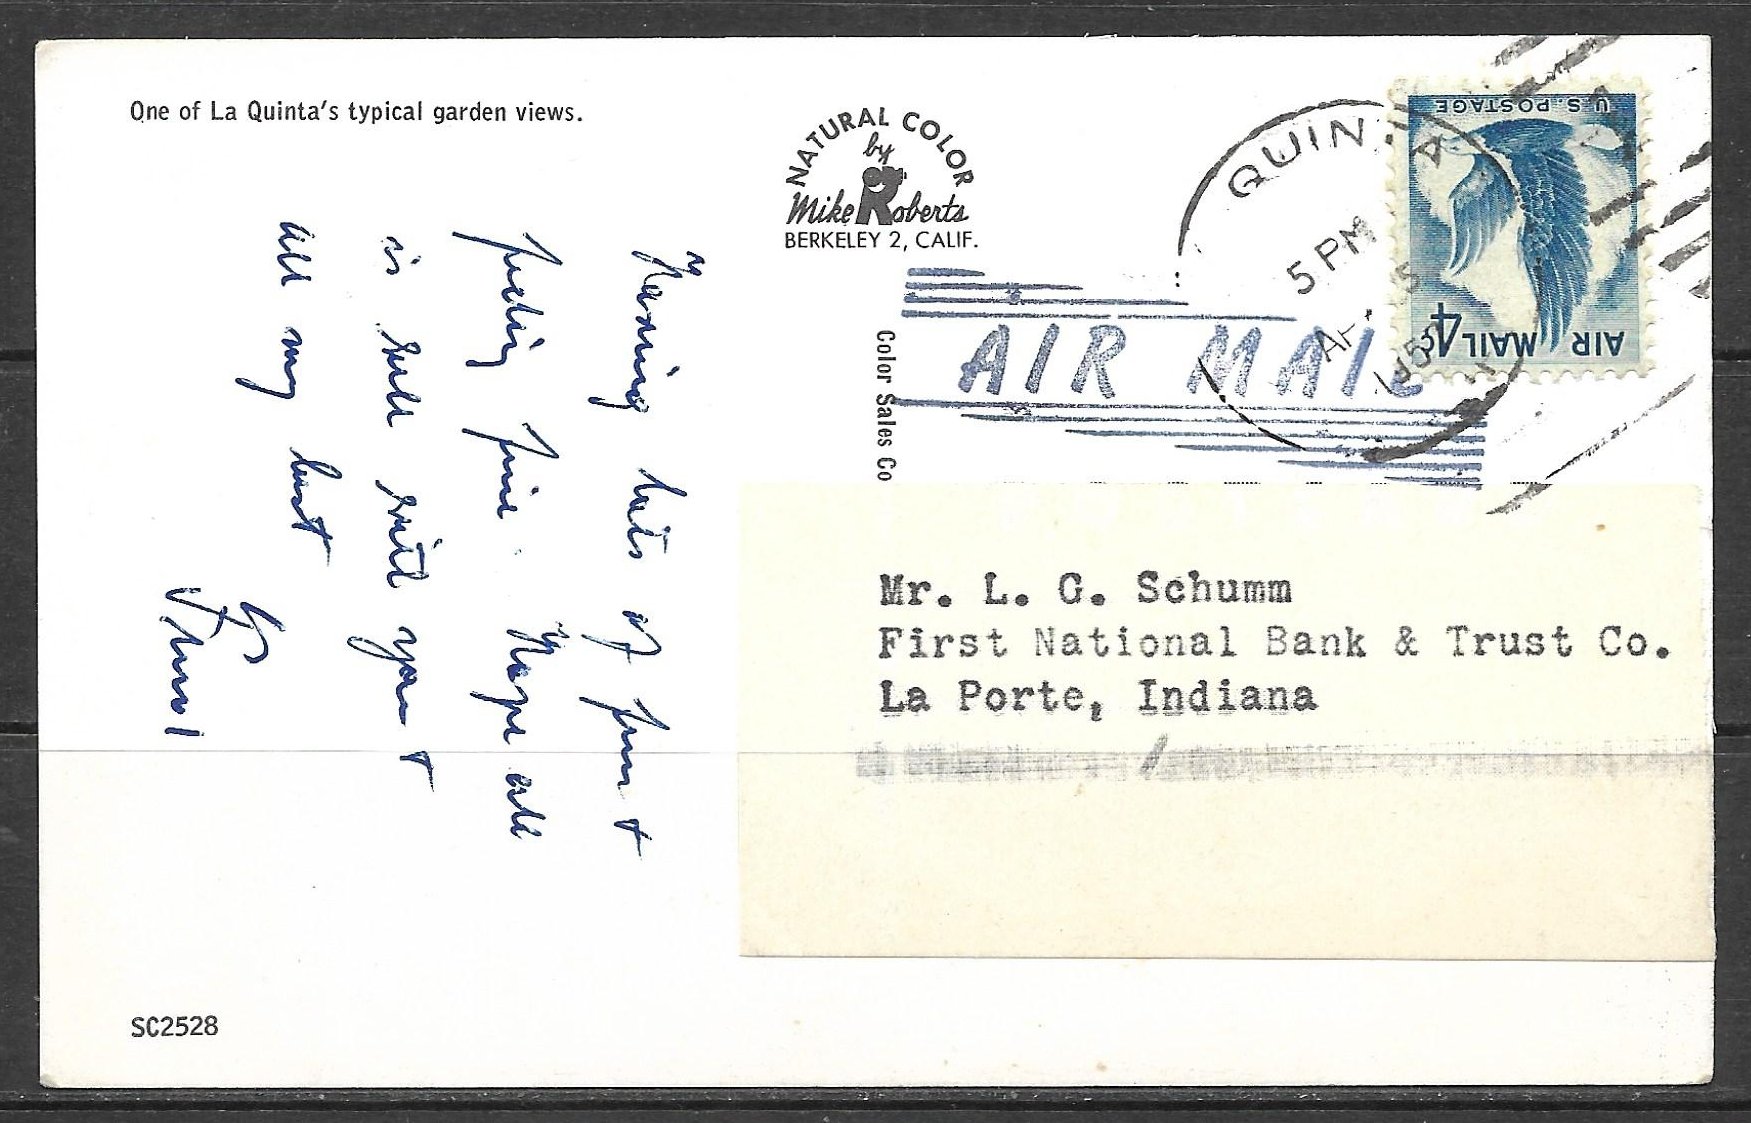 One of La Quinta's typical garden views.
NATURAL COLOR
by
Mike Roberts
BERKELEY 2, CALIF.
Color Sales Co
QUINTA
5 PM
1959
U.S. POSTAGE
AIR MAIL 4¢
AIR MAIL
Having lots of fun &
feeling fine. Hope all
is well with you &
all my best
Mr. L. G. Schumm
First National Bank & Trust Co.
La Porte, Indiana
SC2528